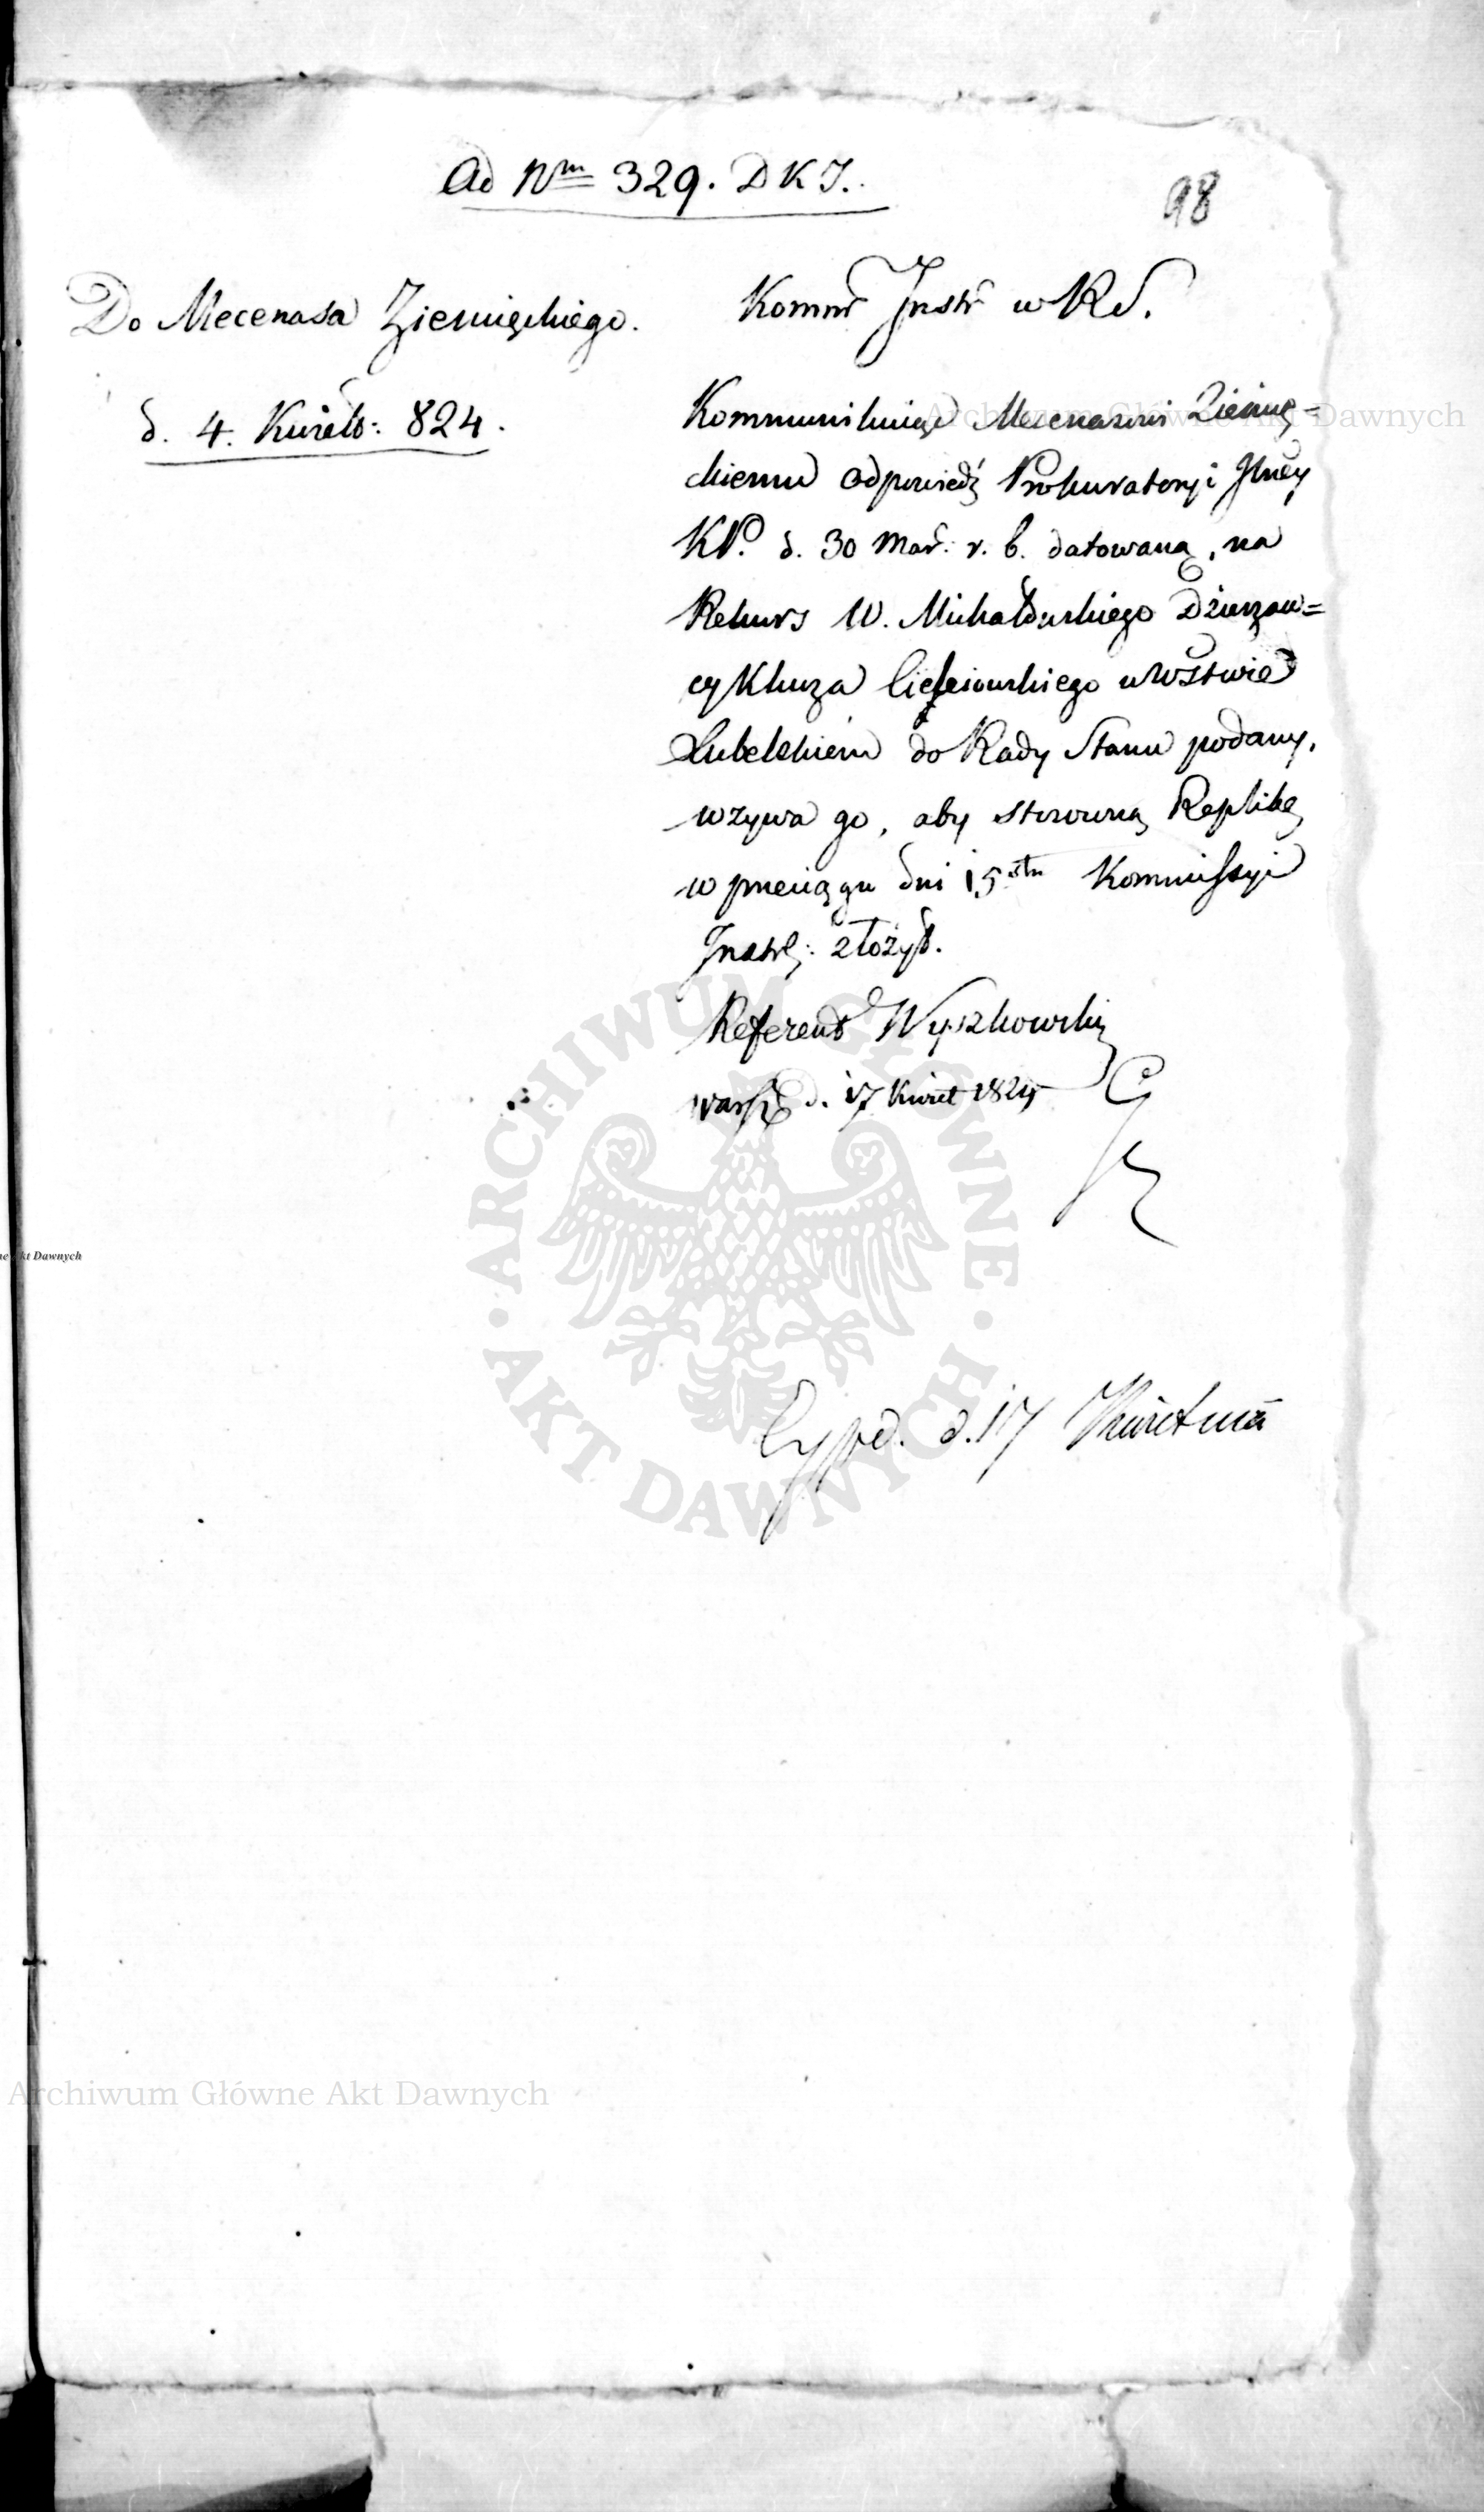 Ad Nrm 329. DKJ.
98
Do Mecenasa Ziemięckiego.
d. 4. Kwiet: 824.
Komm Instr w RS.
Kommunikuiąc Mecenasowi Ziemię=
ckiemu odpowiedź Prokuratoryi Jlney
KP. d. 30 Mar: r. b. datowaną, na
Rekurs W. Michałowskiego Dzierżaw=
cy Klucza w Wztwie
Lubelskiem do Rady Stanu podany,
wzywa go, aby stosowną Replikę
w przeciągu dni 15stu Kommissyi
Instr: złożył.
Referend Wyszkowski
Warsz d. 17 Kwiet 1824
Exped. d. 17 Kwietnia
Archiwum Główne Akt Dawnych
ne Akt Dawnych
ARCHIWUM GŁÓWNE
AKT DAWNYCH
Archiwum Główne Akt Dawnych